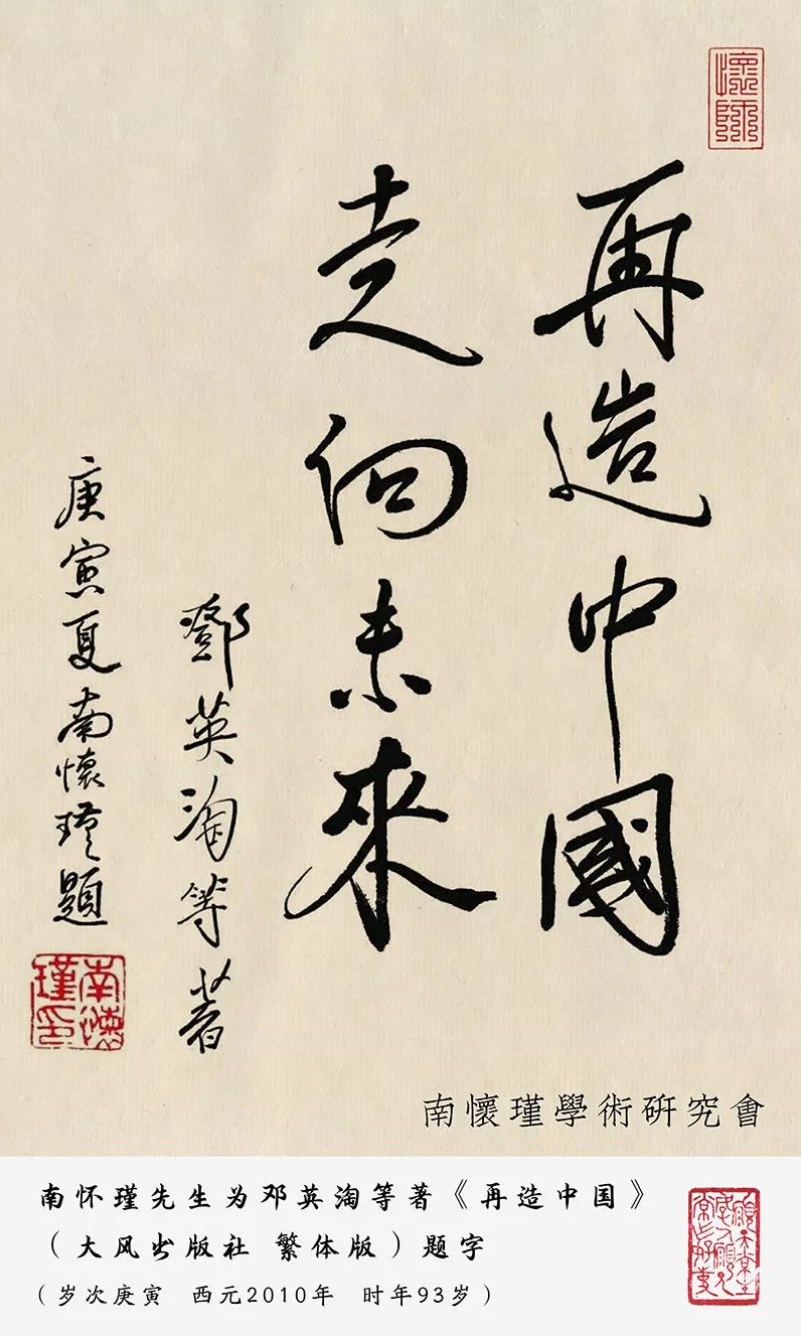 懷師
再造中國
走向未來
鄧英淘等著
庚寅夏南懷瑾題
南懷瑾印
南懷瑾學術研究會
南怀瑾先生为邓英淘等著《再造中国》
（大风出版社 繁体版）题字
（岁次庚寅 西元2010年 时年93岁）